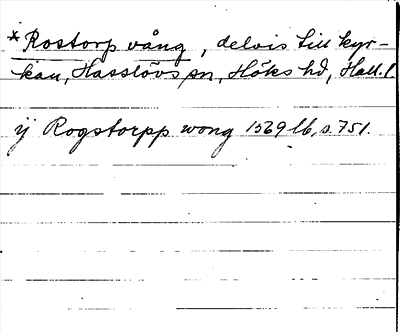 * Rostorp vång, delvis till kyr-
kan, Hasslövs sn, Höks hd, Hall. l.
ij Rogstorpp wong 1569 lb, s. 751.